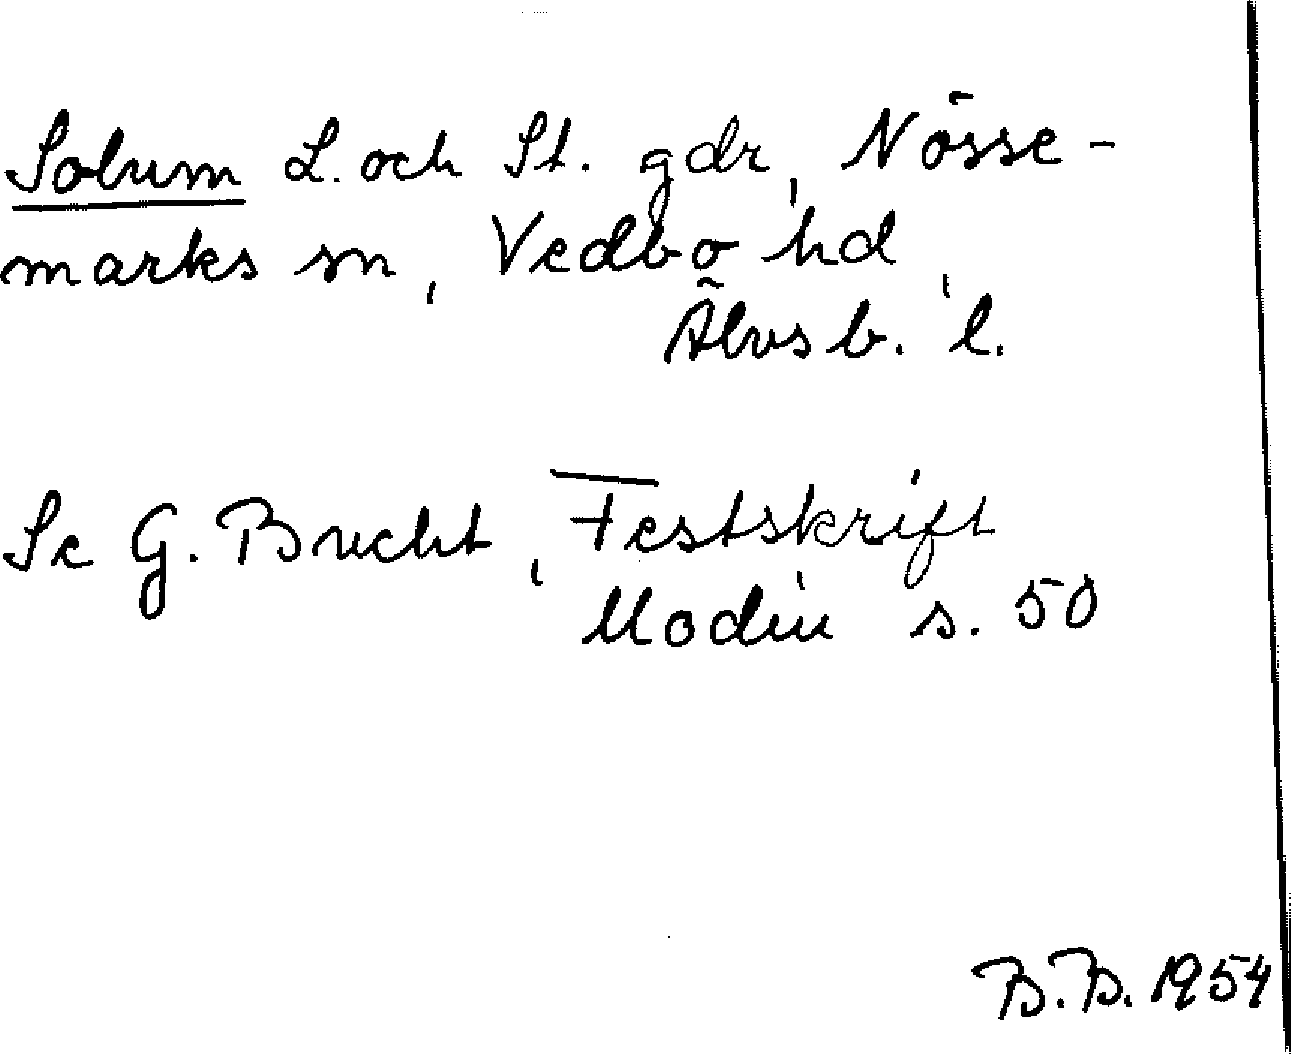 Solum L. och St. gdr, Nösse-
marks sn, Vedbo hd,
Älvsb. l.
Se G. Brucht, Festskrift
Modin s. 50
B.B. 1954